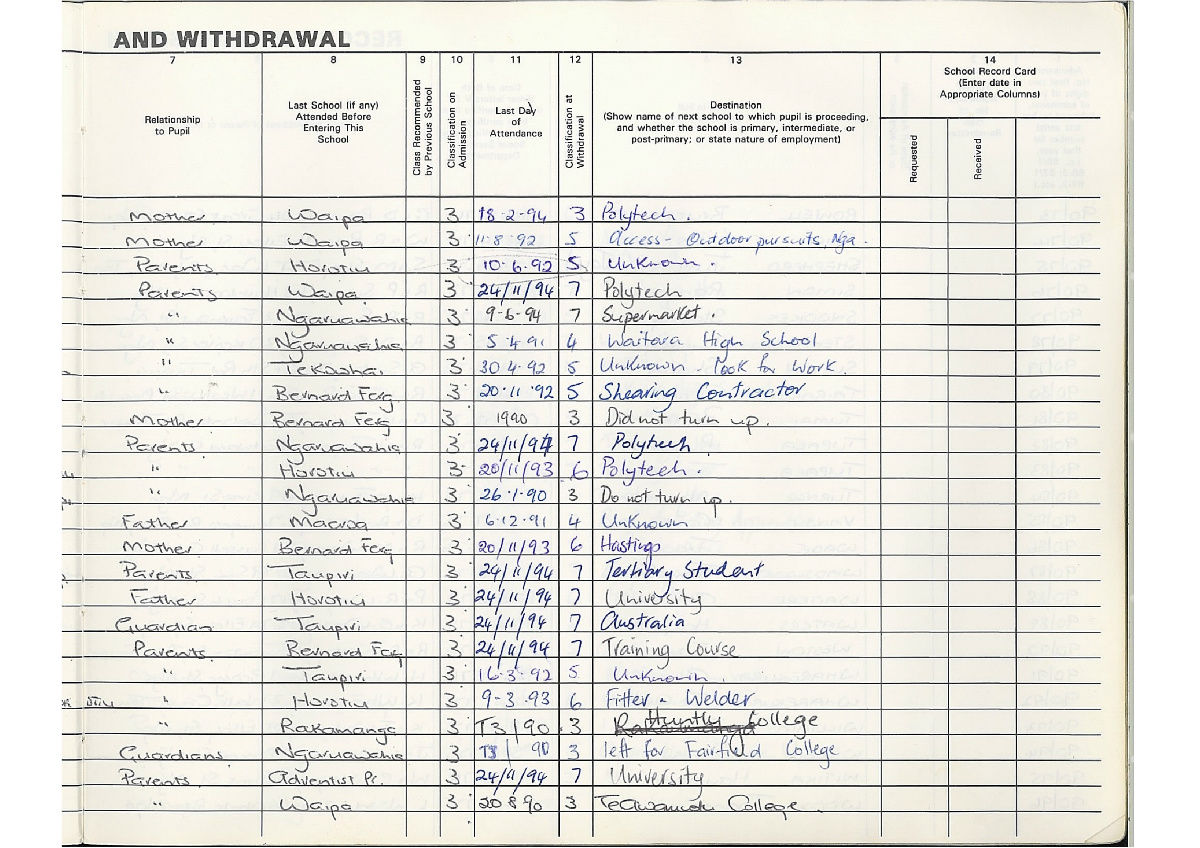 AND WITHDRAWAL
7 8 9 10 11 12 13 14
Relationship to Pupil
Last School (if any) Attended Before Entering This School
Class Recommended by Previous School
Classification on Admission
Last Day of Attendance
Classification at Withdrawal
Destination
(Show name of next school to which pupil is proceeding, and whether the school is primary, intermediate, or post-primary; or state nature of employment)
School Record Card (Enter date in Appropriate Columns)
Requested
Received
Mother Waipa 3 18-2-94 3 Polytech.
Mother Waipa 3 11·8·92 5 Access - Outdoor pursuits, Nga.
Parents Horotiu 3 10·6·92 5 Unknown.
Parents Waipa 3 24/11/94 7 Polytech
" Ngaruawahia 3 9-6-94 7 Supermarket.
" Ngaruawahia 3 5·4·91 4 Waitara High School
" 3 30·4·92 5 Unknown - look for Work.
" Bernard Ferg 3 20·11·92 5 Shearing Contractor
Mother Bernard Ferg 3 1990 3 Did not turn up.
Parents Ngaruawahia 3 24/11/94 7 Polytech
" Horotiu 3 20/11/93 6 Polytech.
" Ngaruawahia 3 26·1·90 3 Do not turn up.
Father Macroa 3 6·12·91 4 Unknown
Mother Bernard Ferg 3 20/11/93 6 Hastings
Parents Taupiri 3 24/11/94 7 Tertiary Student
Father Horotiu 3 24/11/94 7 University
Guardian Taupiri 3 24/11/94 7 Australia
Parents Bernard Ferg 3 24/11/94 7 Training Course
" Taupiri 3 16·3·92 5 Unknown.
" Horotiu 3 9-3-93 6 Fitter - Welder
" Rakamanga 3 T3/90 3 Huntly College
Guardians Ngaruawahia 3 T3/90 3 left for Fairfield College
Parents Adventist Pr. 3 24/11/94 7 University
" Waipa 3 20 8 90 3 Te Awamutu College.